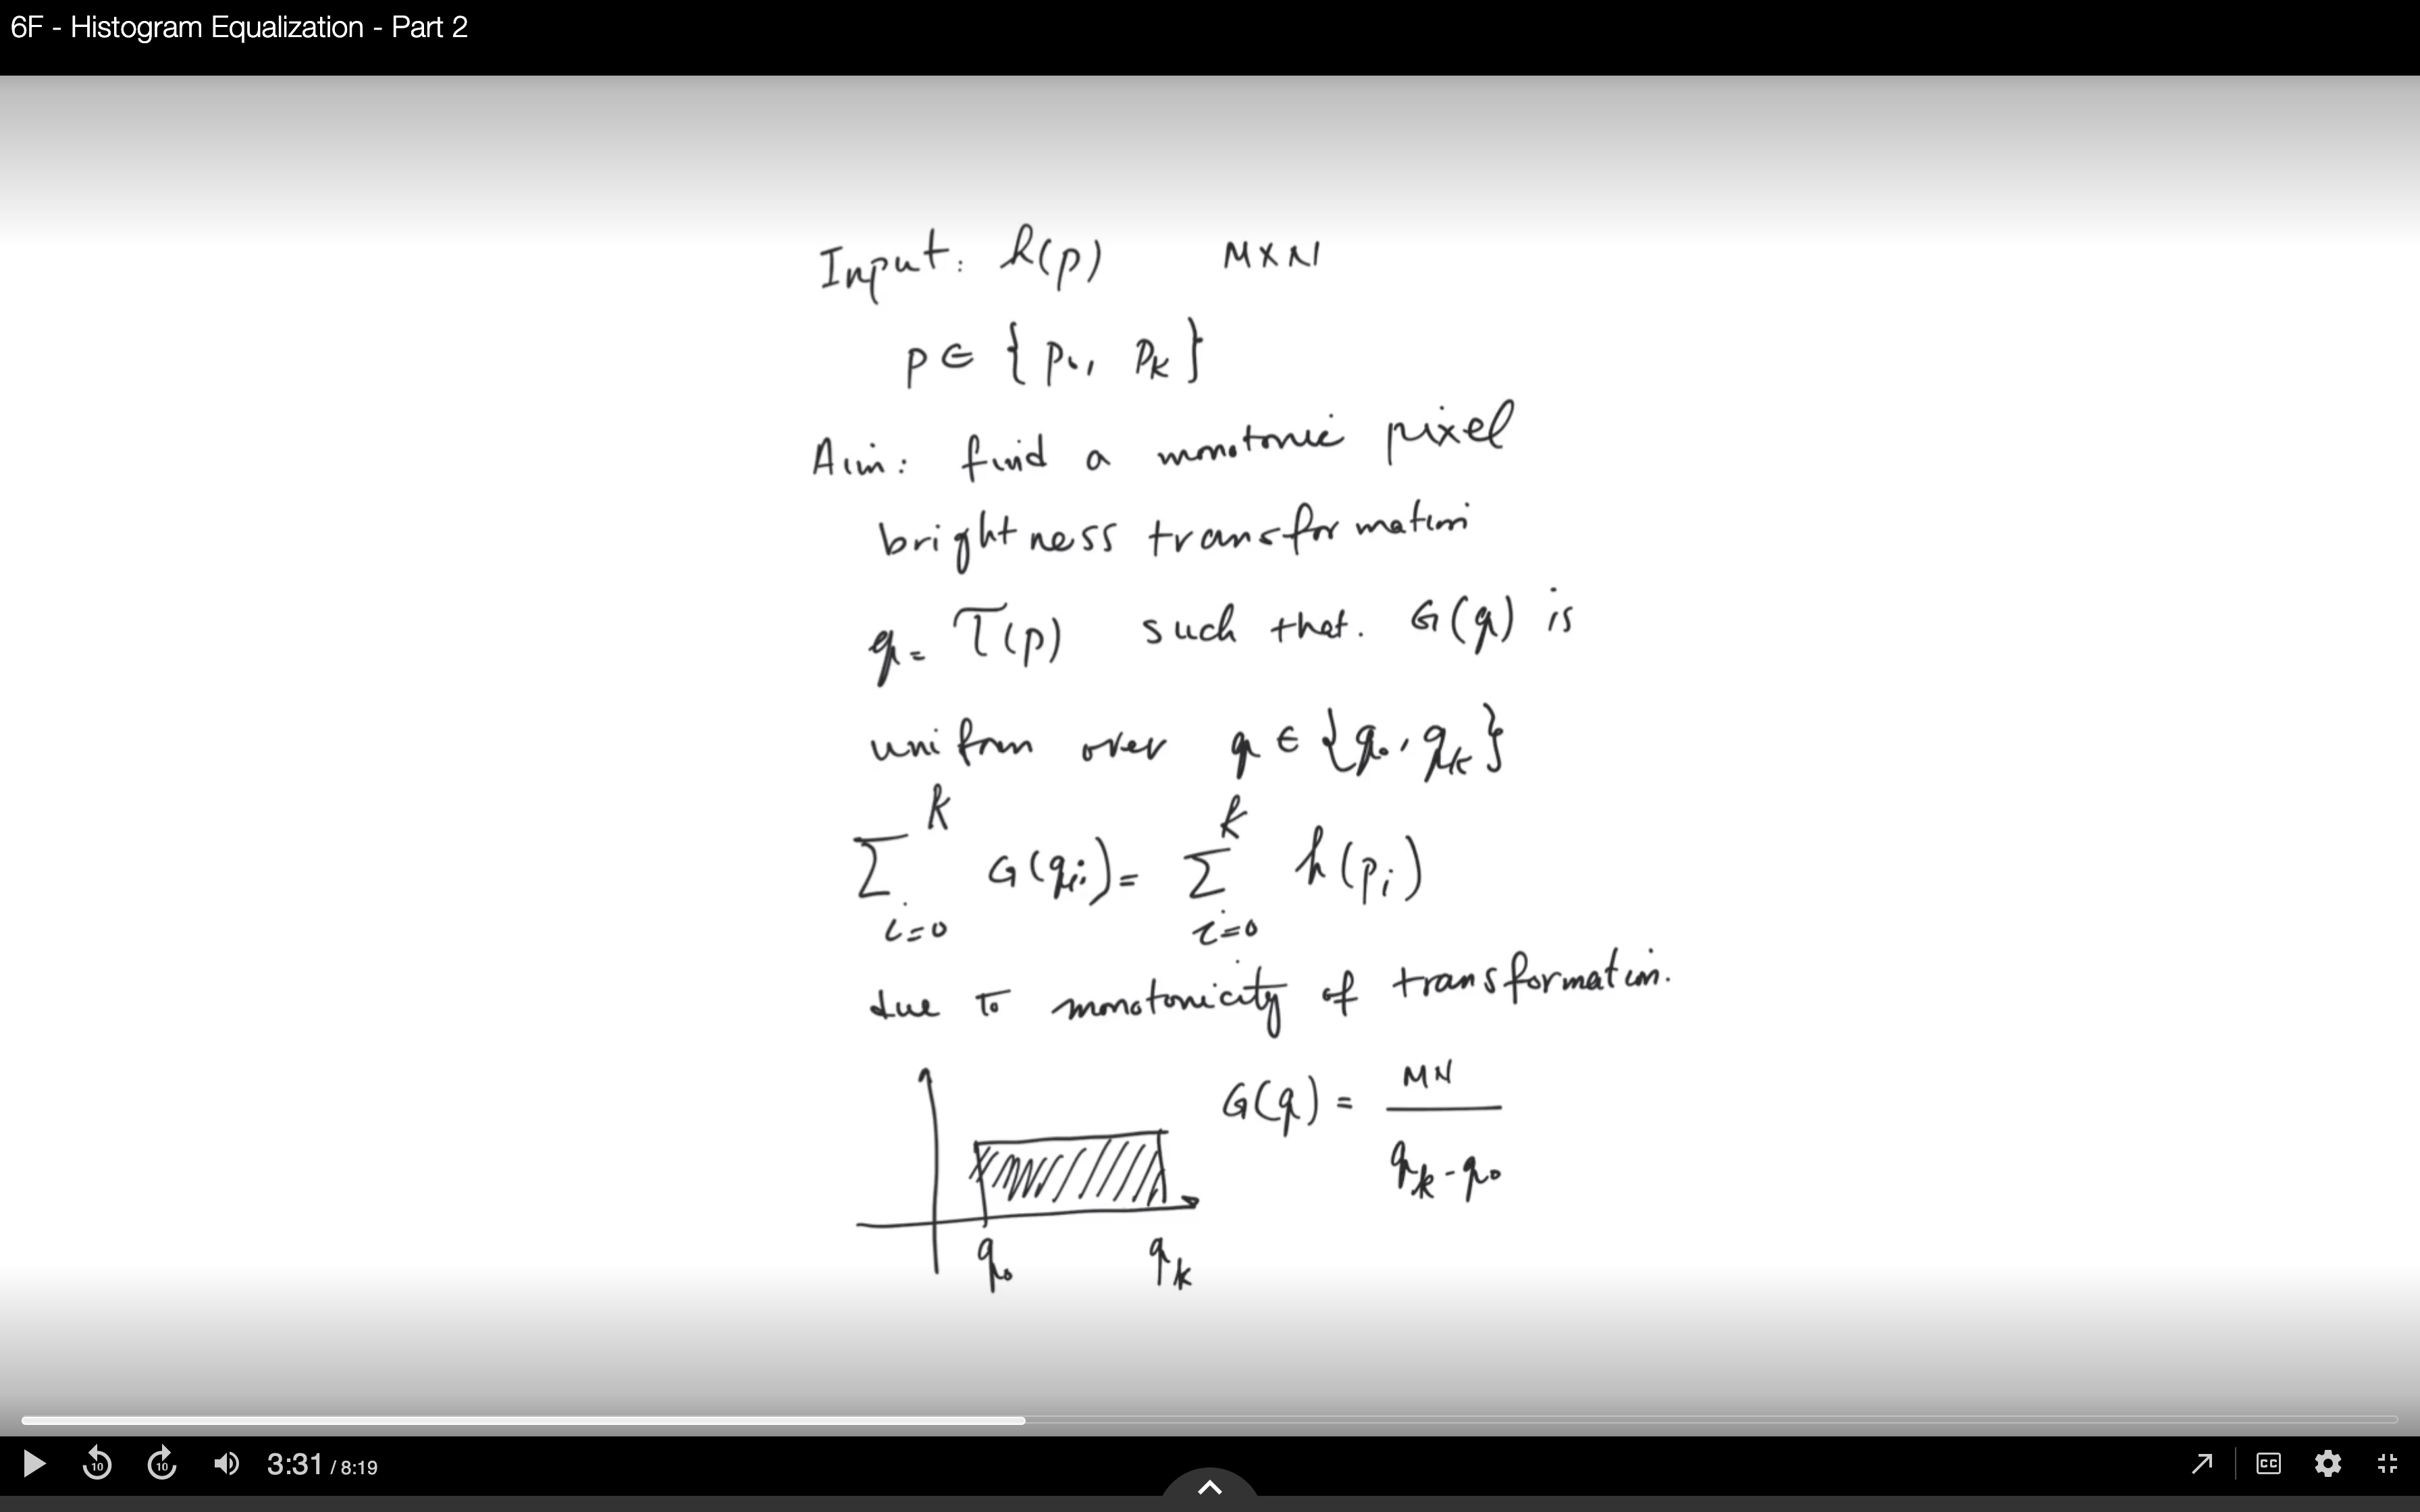 6F - Histogram Equalization - Part 2
Input: h(p) M×N
p ∈ {p₀, pₖ}
Aim: find a monotonic pixel
brightness transformation
q = T(p) such that. G(q) is
uniform over q ∈ {q₀, qₖ}
∑ᵢ₌₀ᵏ G(qᵢ) = ∑ᵢ₌₀ᵏ h(pᵢ)
due to monotonicity of transformation.
G(q) = MN / (qₖ - q₀)
q₀ qₖ
10 10 3:31 / 8:19 CC